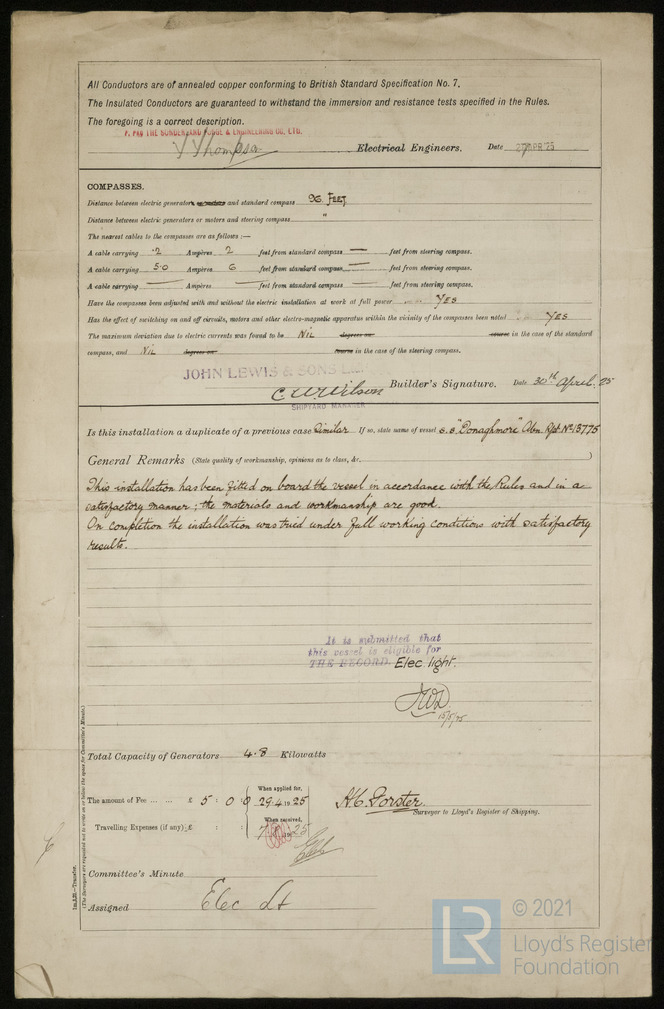 All Conductors are of annealed copper conforming to British Standard Specification No. 7.
The Insulated Conductors are guaranteed to withstand the immersion and resistance tests specified in the Rules.
The foregoing is a correct description.
P. PRO THE SUNDERLAND FORGE & ENGINEERING CO. LTD.
Thompson Electrical Engineers. Date 27 APR 25
COMPASSES.
Distance between electric generators or motors and standard compass 96 FEET
Distance between electric generators or motors and steering compass "
The nearest cables to the compasses are as follows:—
A cable carrying .2 Ampères 2 feet from standard compass — feet from steering compass.
A cable carrying 5.0 Ampères 6 feet from standard compass — feet from steering compass.
A cable carrying — Ampères — feet from standard compass — feet from steering compass.
Have the compasses been adjusted with and without the electric installation at work at full power YES
Has the effect of switching on and off circuits, motors and other electro-magnetic apparatus within the vicinity of the compasses been noted YES
The maximum deviation due to electric currents was found to be Nil degrees on course in the case of the standard
compass, and Nil degrees on course in the case of the steering compass.
JOHN LEWIS & SONS LTD.
C. W. Wilson Builder's Signature. Date 30th April. 25
SHIPYARD MANAGER
Is this installation a duplicate of a previous case Similar If so, state name of vessel s.s "Donaghmore" Abn. Rpt. No. 13775
General Remarks (State quality of workmanship, opinions as to class, &c. )
This installation has been fitted on board the vessel in accordance with the Rules and in a
satisfactory manner; the materials and workmanship are good.
On completion the installation was tried under full working conditions with satisfactory
results.
It is submitted that
this vessel is eligible for
THE RECORD. Elec light.
15/5/25
Total Capacity of Generators 4.8 Kilowatts
The amount of Fee ... ... £ 5 : 0 : 0 When applied for, 29.4.1925
H.C. Forster.
Surveyor to Lloyd's Register of Shipping.
Travelling Expenses (if any) £ : : When received, 1925
Committee's Minute
Assigned Elec Lt
1m.4.21.—Transfer.
(The Surveyors are requested not to write on or below the space for Committee's Minute.)
LR © 2021
Lloyd's Register
Foundation